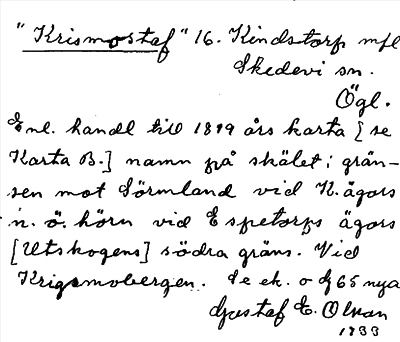 "Krismostaf" 16. Kindstorp mfl
Skedevi sn.
Ögl.
Enl. handl till 1819 års karta [se
Karta B.] namn på skälet i grän-
sen mot Sörmland vid K. ägors
n. ö. hörn vid Espetorps ägors
[Utskogens] södra gräns. Vid
Krigsmobergen. Se ek. o dj 65 nya
Gustaf E. Olson
1933